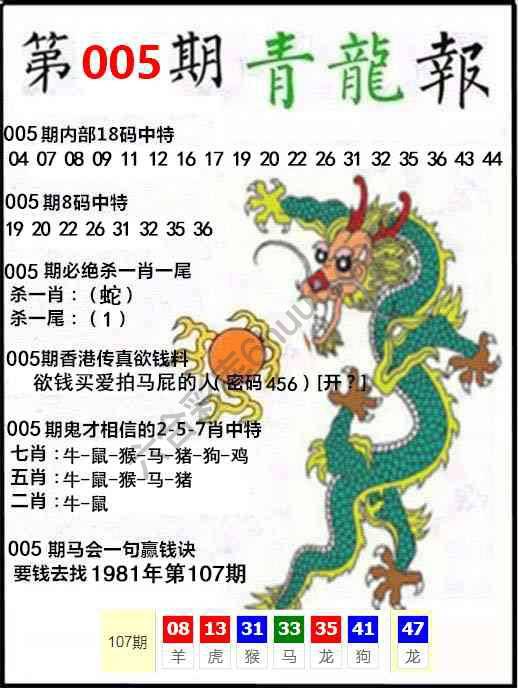 第005期青龍報
005期内部18码中特
04 07 08 09 11 12 16 17 19 20 22 26 31 32 35 36 43 44
005期8码中特
19 20 22 26 31 32 35 36
005期必绝杀一肖一尾
杀一肖：（蛇）
杀一尾：（1）
005期香港传真欲钱料
欲钱买爱拍马屁的人(密码456)[开？]
005期鬼才相信的2-5-7肖中特
七肖：牛-鼠-猴-马-猪-狗-鸡
五肖：牛-鼠-猴-马-猪
二肖：牛-鼠
005期马会一句赢钱诀
要钱去找1981年第107期
107期 08 13 31 33 35 41 47
羊 虎 猴 马 龙 狗 龙